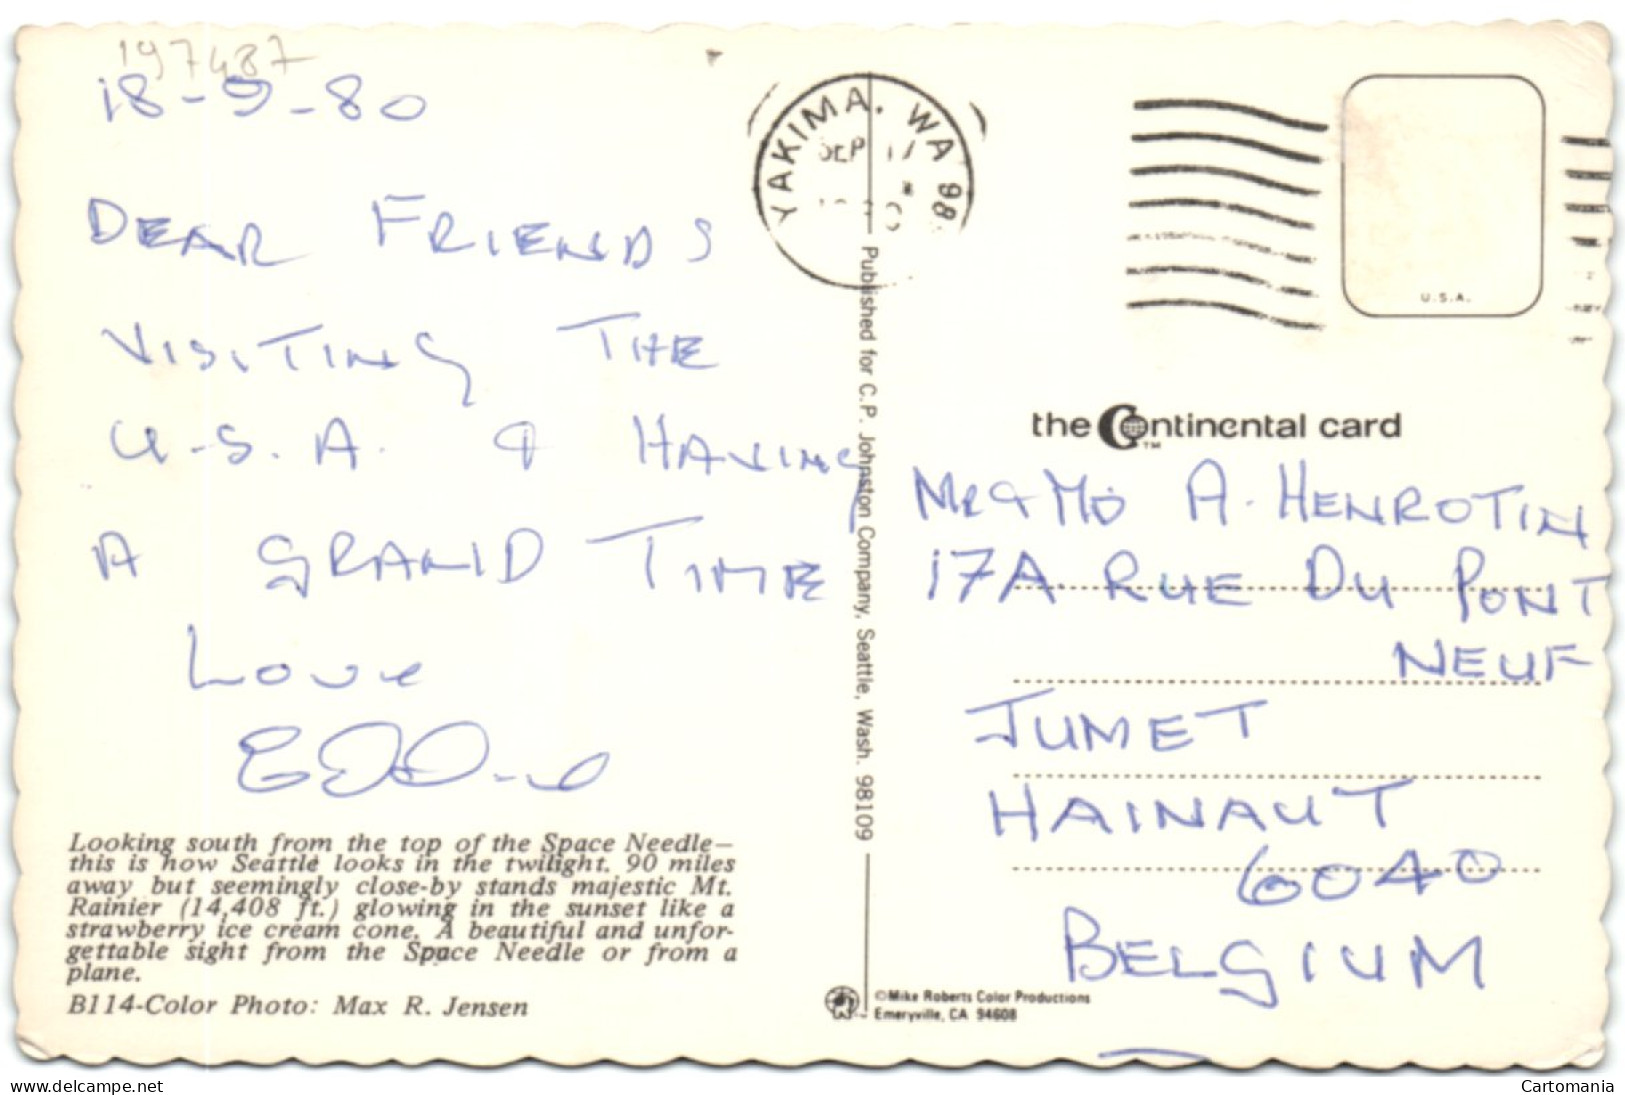 197487
18-9-80
DEAR FRIENDS
VISITING THE
U.S.A. & HAVING
A GRAND TIME
LOVE
Looking south from the top of the Space Needle—
this is how Seattle looks in the twilight. 90 miles
away but seemingly close-by stands majestic Mt.
Rainier (14,408 ft.) glowing in the sunset like a
strawberry ice cream cone. A beautiful and unfor-
gettable sight from the Space Needle or from a
plane.
B114-Color Photo: Max R. Jensen
YAKIMA. WA 98
SEP 17
Published for C.P. Johnston Company, Seattle, Wash. 98109
©Mike Roberts Color Productions
Emeryville, CA 94608
U.S.A.
the Continental card™
MR & A. HENROTIN
17A RUE DU PONT
NEUF
JUMET
HAINAUT
6040
BELGIUM
www.delcampe.net
Cartomania